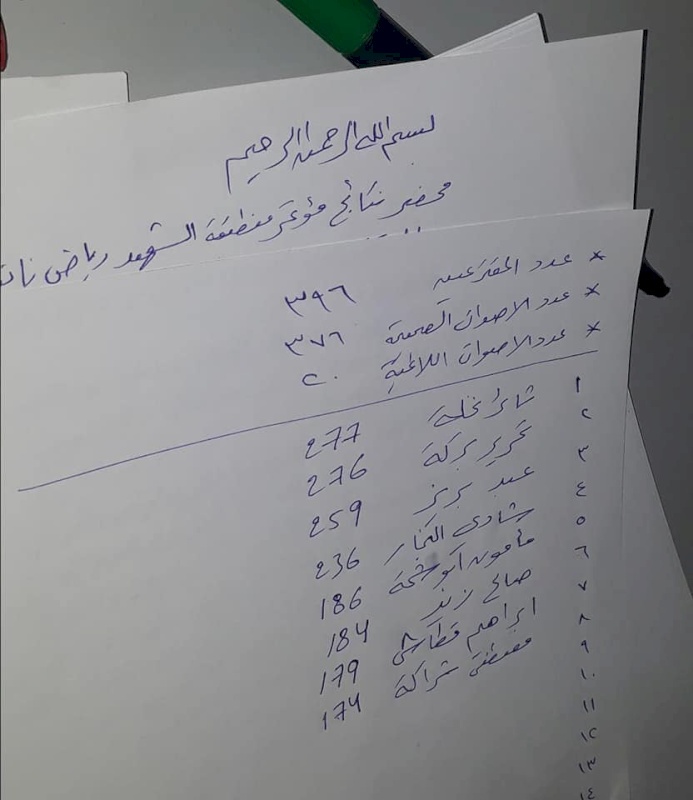 بسم الله الرحمن الرحيم
محضر نتائج مؤتمر منطقة الشهيد رياض
* عدد المقترعين ٣٩٦
* عدد الاصوات الصحيحة ٣٧٦
* عدد الاصوات اللاغية ٢٠
١ ثائر نخلة 277
٢ تحرير بركة 276
٣ عبد بريز 259
٤ شادي النجار 236
٥ مأمون ابو شحة 186
٦ صالح زيد 184
٧ ابراهيم قطاش 179
٨ مصطفى شراكة 174
٩
١٠
١١
١٢
١٣
١٤